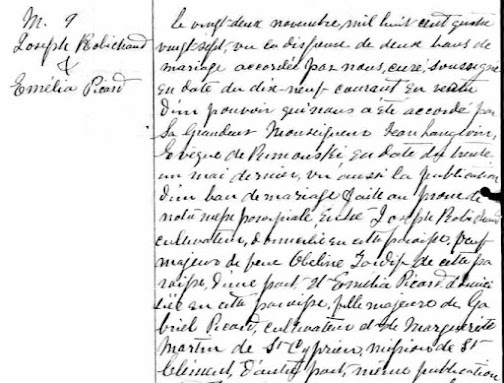 M. 9
Joseph Robichaud
&
Emélia Picard
Le vingt deux novembre, mil huit cent quatre
vingt sept, vu la dispense de deux bans de
mariage accordée par nous, curé, soussigné
en date du dix-neuf courant en vertu
d'un pouvoir qui nous a été accordé par
Sa Grandeur Monseigneur Jean Langevin,
Evêque de Rimouski, en date du trente
un mai dernier, vu aussi la publication
d'un ban de mariage faite au prône de
notre messe paroissiale entre Joseph Robichaud
cultivateur, domicilié en cette paroisse, veuf
majeur de feue Obeline Tardif de cette pa
roisse, d'une part, et Emélia Picard domici
liée en cette paroisse, fille majeure de Ga
briel Picard, cultivateur et de Marguerite
Martin de St Cyprien, mission de St
Clément, d'autre part, même publication